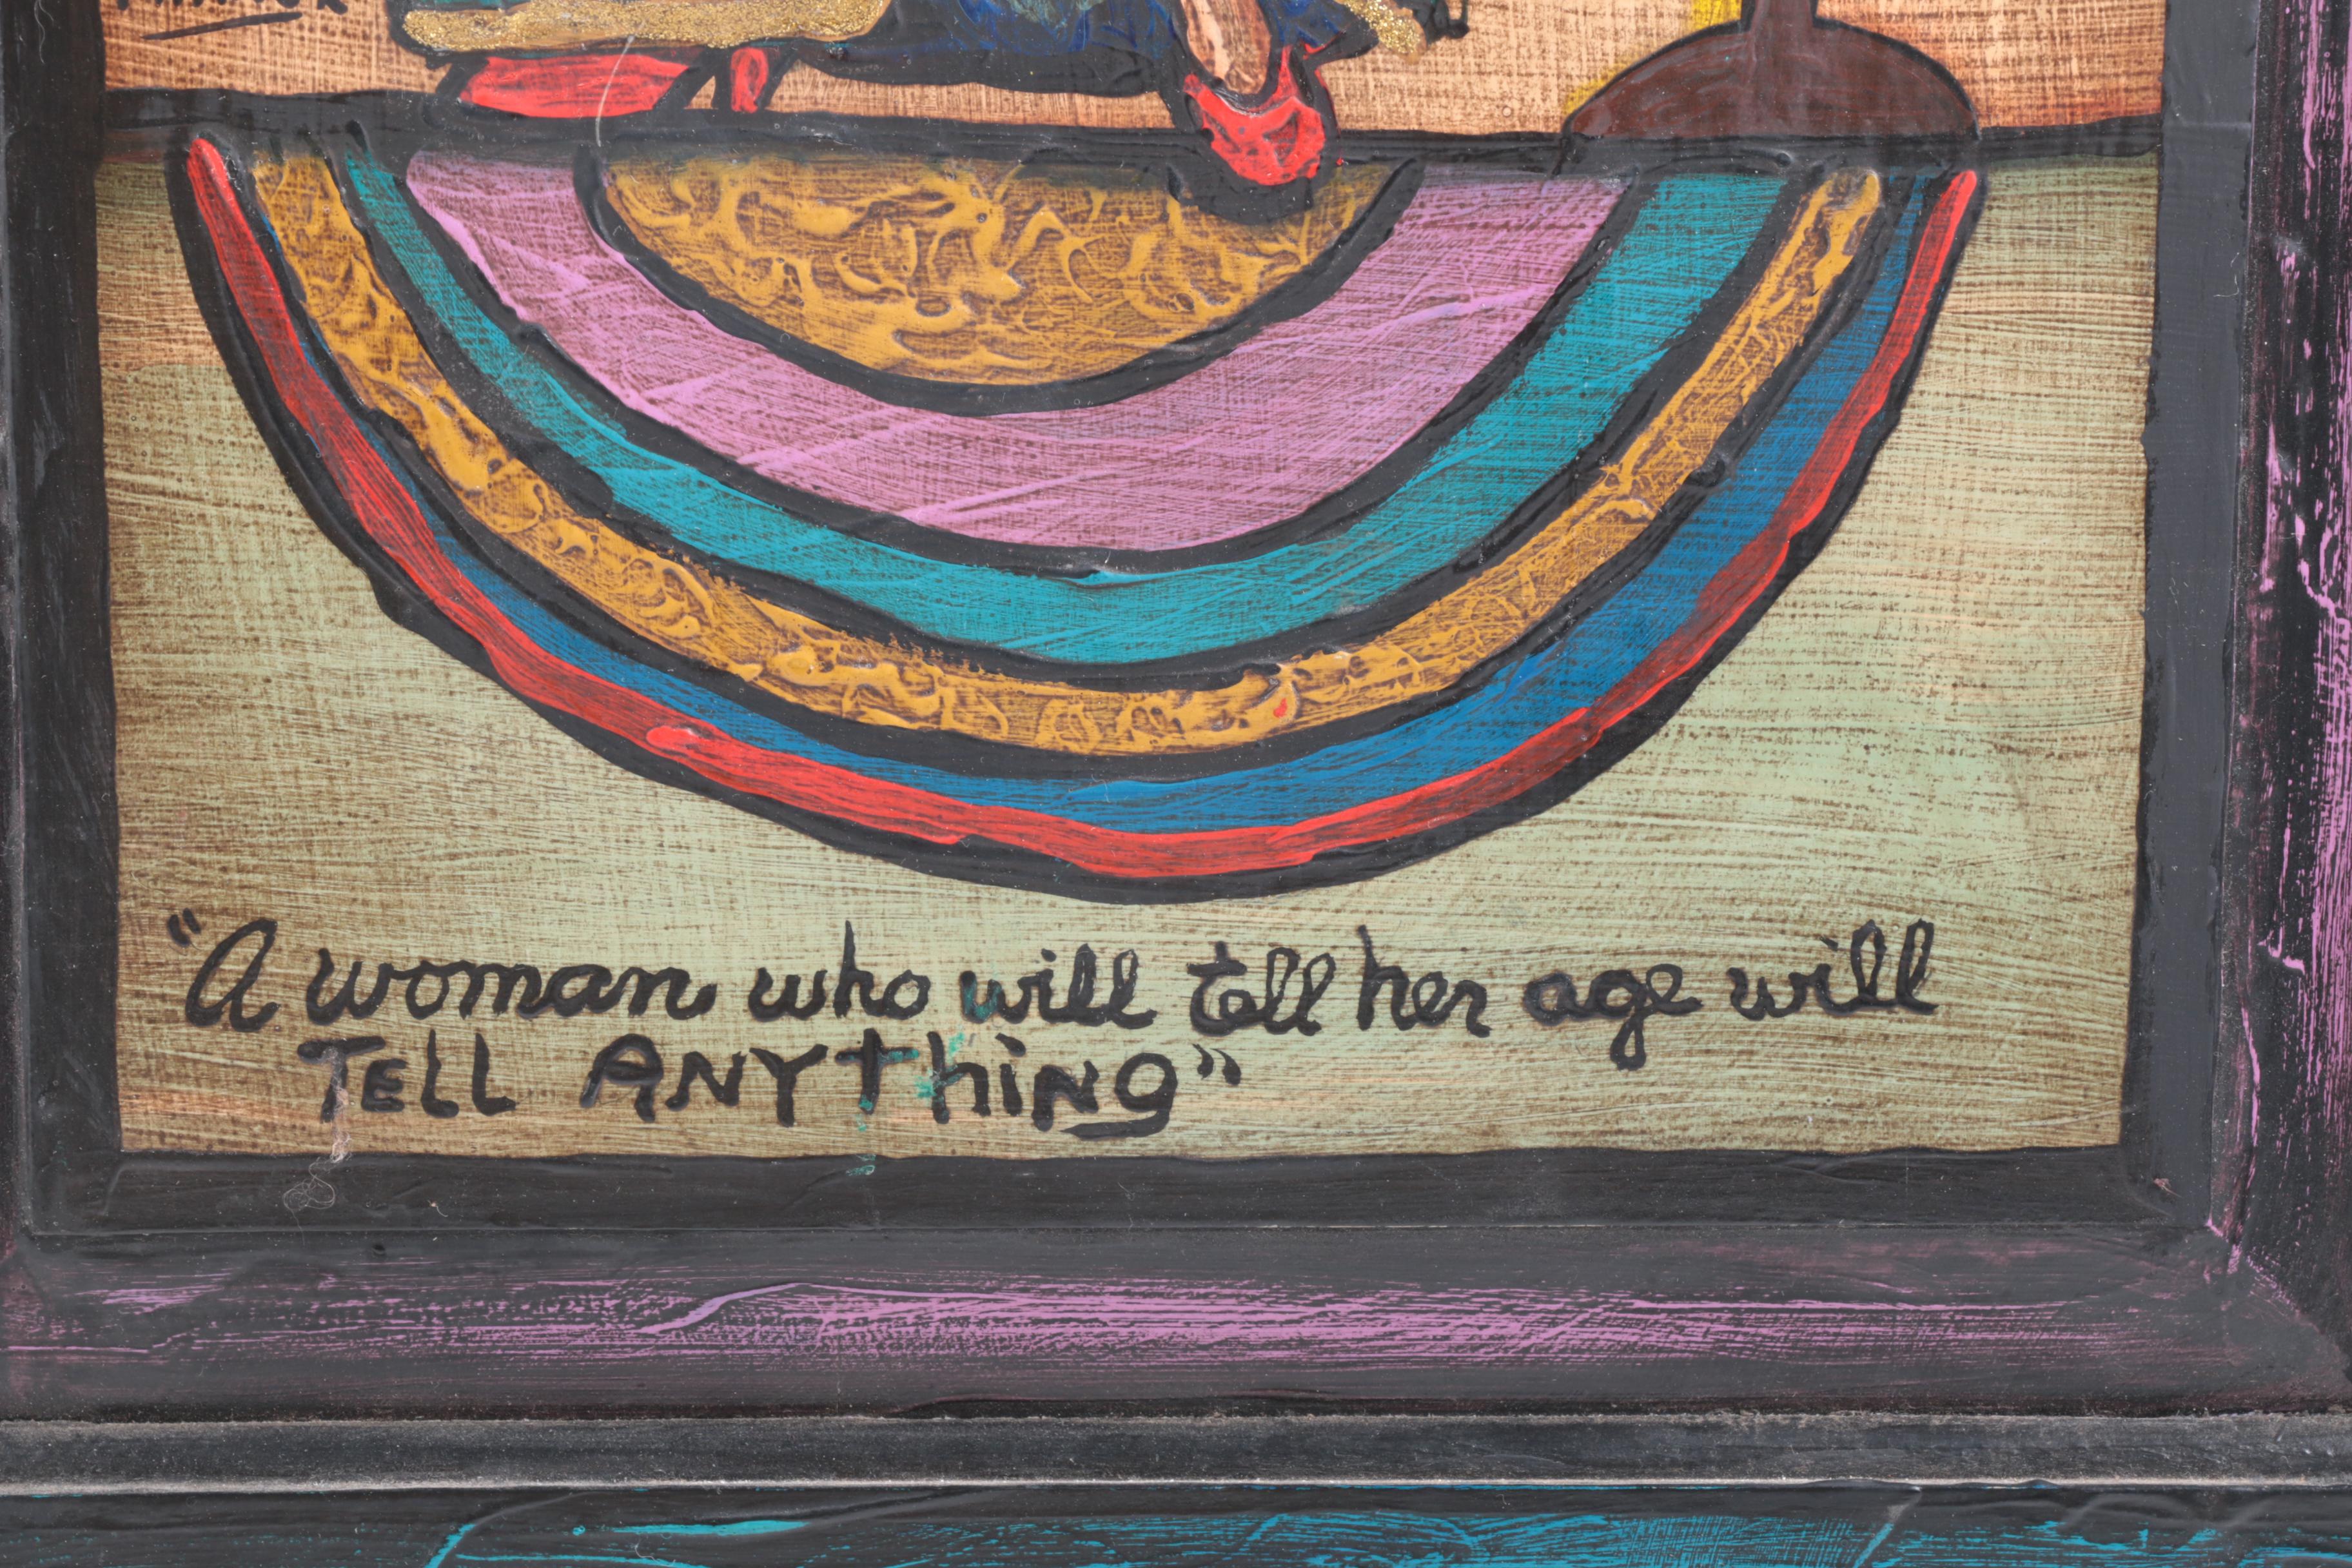 "A woman who will tell her age will
TELL ANYthiNg"